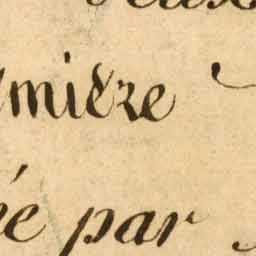 mière
é par